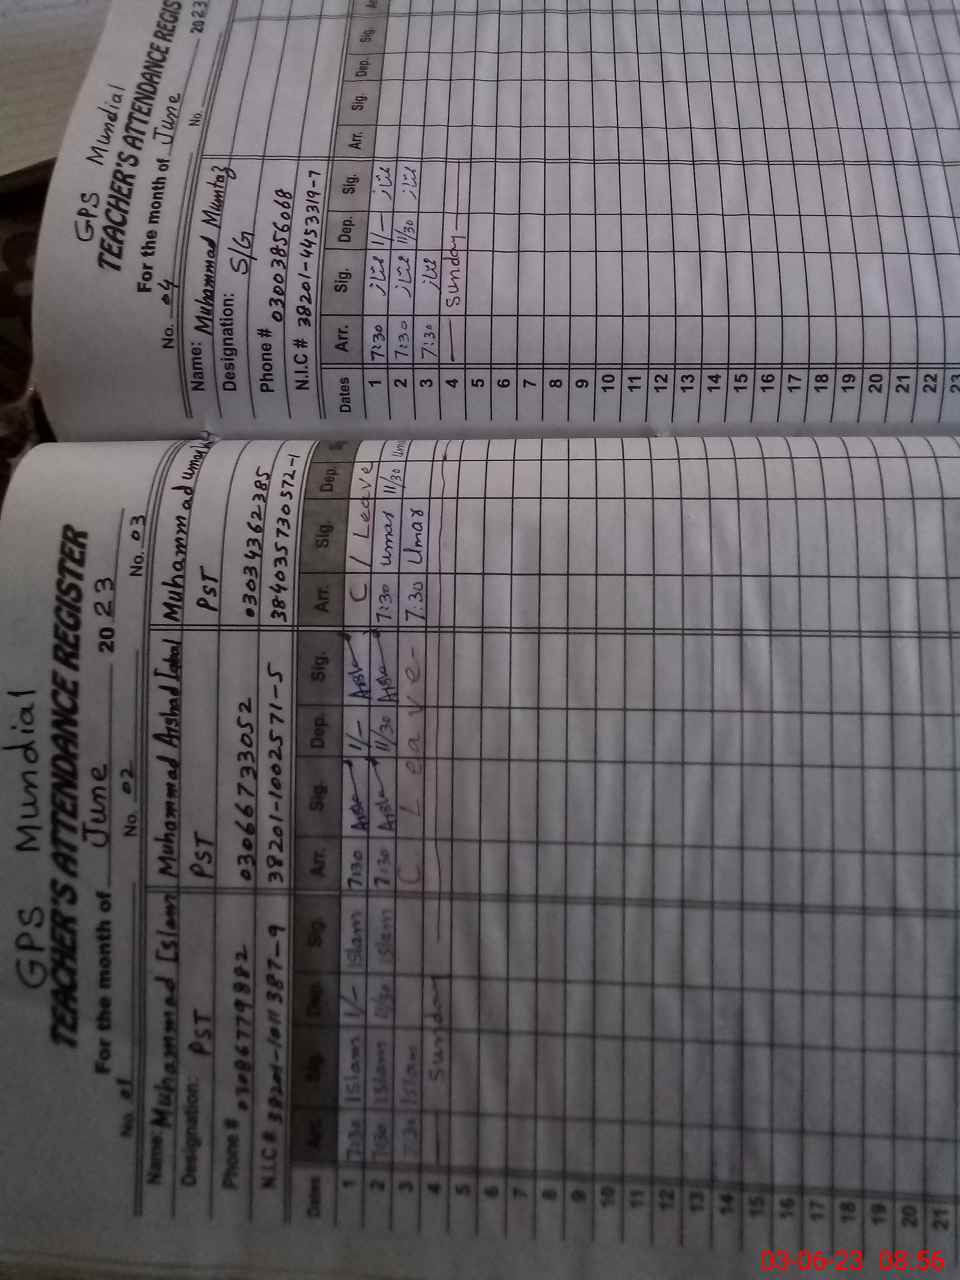 GPS Mundial
TEACHER'S ATTENDANCE REGISTER
For the month of June 2023
No. 01 No. 02 No. 03
Name: Muhammad Islam Muhammad Arshad Iqbal Muhammad Umar
Designation: PST PST PST
Phone # 03086779882 03066733052 03034362385
N.I.C # 38201-1011387-9 38201-1002571-5 384035730572-1
Dates Arr. Sig. Dep. Sig. Arr. Sig. Dep. Sig. Arr. Sig. Dep.
1 7:30 Islam 1/- Islam 7:30 1/- C / Leave
2 7:30 Islam 11/30 Islam 7:30 11/30 7:30 umar 11/30 Umar
3 7:30 Islam C Leave- 7:30 Umar
4 Sunday
5
6
7
8
9
10
11
12
13
14
15
16
17
18
19
20
21
GPS Mundial
TEACHER'S ATTENDANCE REGIS
For the month of June 2023
No. 04 No.
Name: Muhammad Mumtaz
Designation: S/G
Phone # 03003856068
N.I.C # 38201-4453319-7
Dates Arr. Sig. Dep. Sig. Arr. Sig. Dep. Sig.
1 7:30 ممتاز 1/- ممتاز
2 7:30 ممتاز 11/30 ممتاز
3 7:30 ممتاز
4 Sunday
5
6
7
8
9
10
11
12
13
14
15
16
17
18
19
20
21
22
23
03-06-23 08:56